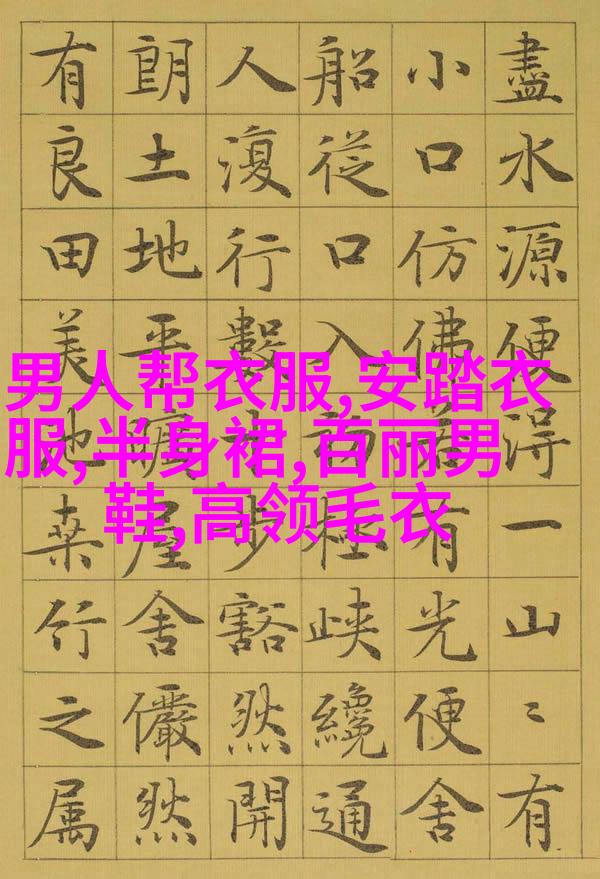 盡水源便得一山〻有
小口仿佛若有光便舍
船從口入初極峽纔通
人復行數十步豁然開
朗土地平曠屋舍儼然
有良田美池桑竹之属
男人帮衣服,安踏衣
服,半身裙,百丽男
鞋,高领毛衣